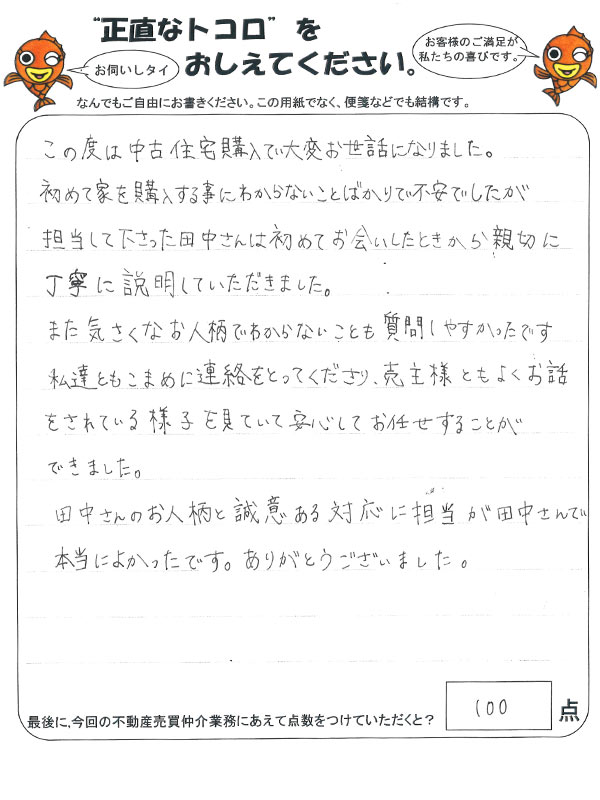 “正直なトコロ”を
おしえてください。
お伺いしタイ
お客様のご満足が
私たちの喜びです。
なんでもご自由にお書きください。この用紙でなく、便箋などでも結構です。
この度は中古住宅購入で大変お世話になりました。
初めて家を購入する事にわからないことばかりで不安でしたが
担当して下さった田中さんは初めてお会いしたときから親切に
丁寧に説明していただきました。
また気さくなお人柄でわからないことも質問しやすかったです
私達ともこまめに連絡をとってくださり、売主様ともよくお話
をされている様子を見ていて安心してお任せすることが
できました。
田中さんのお人柄と誠意ある対応に担当が田中さんで
本当によかったです。ありがとうございました。
最後に、今回の不動産売買仲介業務にあえて点数をつけていただくと？
100
点